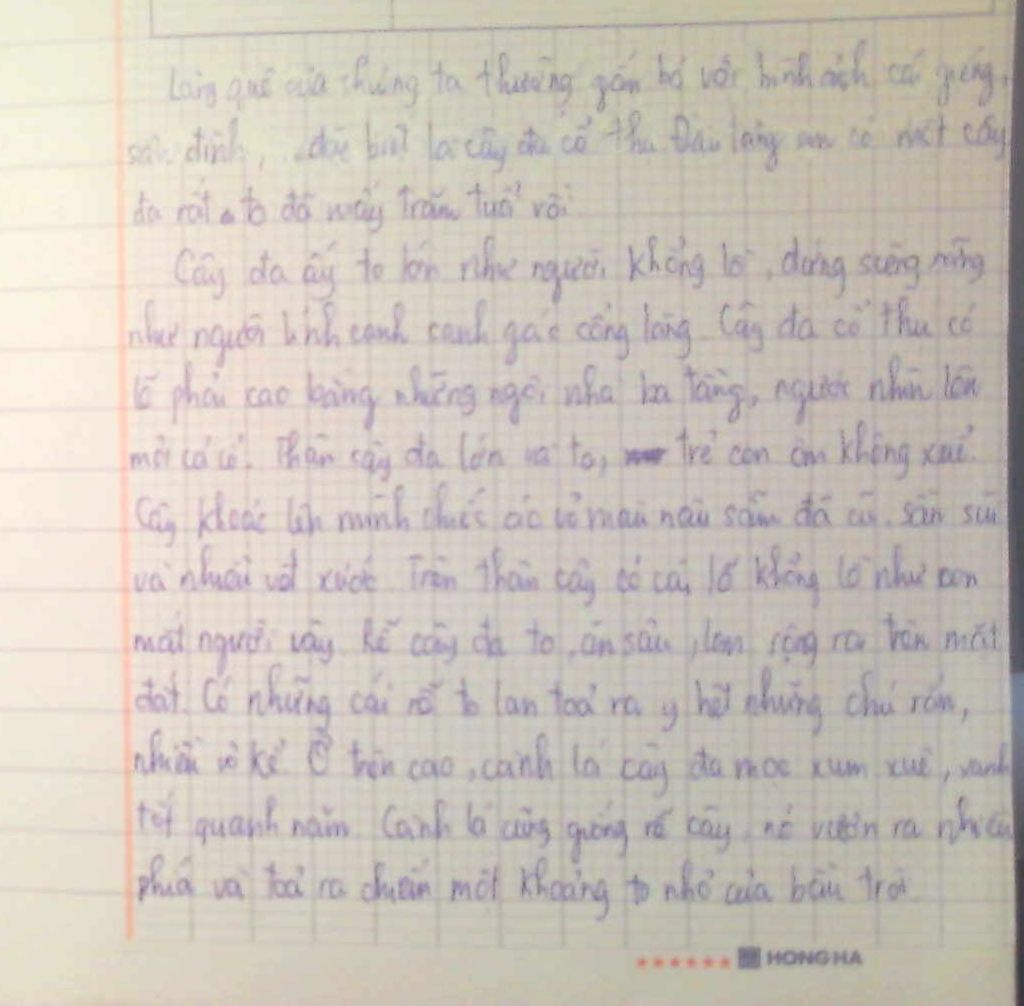 Làng quê của chúng ta thường gắn bó với hình ảnh cái giếng,
sân đình, đặc biệt là cây đa cổ thụ. Đầu làng em có một cây
đa rất to đã mấy trăm tuổi rồi.
Cây đa ấy to lớn như người khổng lồ, đứng sừng sững
như người lính canh canh gác cổng làng. Cây đa cổ thụ có
lẽ phải cao bằng những ngôi nhà ba tầng, người nhìn lên
mỏi cả cổ. Thân cây đa lớn và to, trẻ con ôm không xuể.
Cây khoác lên mình chiếc áo vỏ màu nâu sẫm đã cũ, sần sùi
và nhiều vết xước. Trên thân cây có cái lỗ khổng lồ như con
mắt người vậy. Rễ cây đa to, ăn sâu, lan rộng ra trên mặt
đất. Có những cái rễ to lan toả ra y hệt những chú rắn,
nhiều vô kể. Ở trên cao, cành lá cây đa mọc xum xuê, xanh
tốt quanh năm. Cành lá cũng giống rễ cây, nó vươn ra nhiều
phía và toả ra chiếm một khoảng to nhỏ của bầu trời.
HONG HA